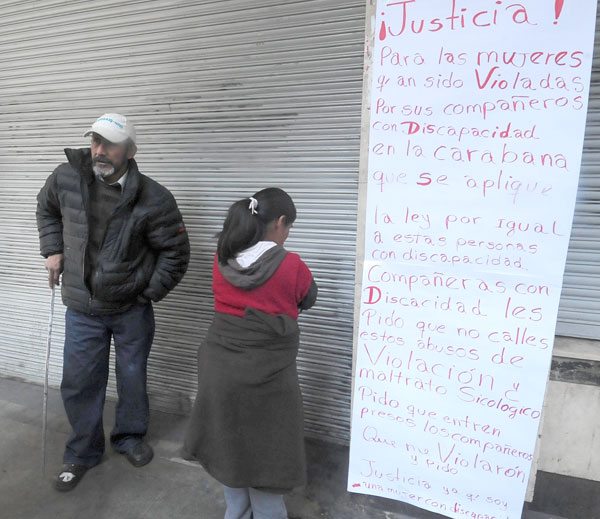 ¡Justicia!
Para las mujeres
q an sido Violadas
Por sus compañeros
con Discapacidad
en la carabana
que se aplique
la ley por igual
a estas personas
con discapacidad.
Compañeras con
Discacidad les
Pido que no calles
estos abusos de
Violación y
maltrato Sicologico
Pido que entren
presos los compañeros
Que nos Violarón
y pido
Justicia ya que soy
una mujer con discapaci